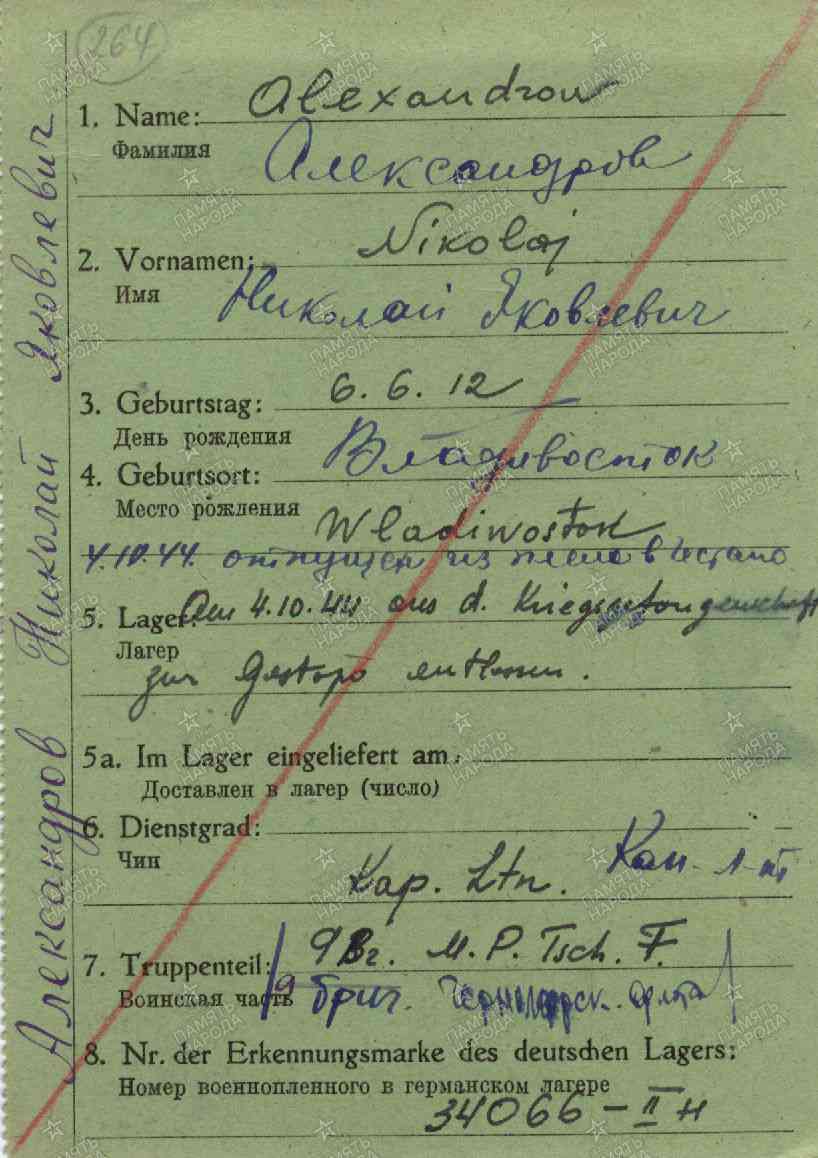 264
1. Name: Alexandrow
Фамилия Александров
2. Vornamen: Nikolaj
Имя Николай Яковлевич
3. Geburtstag: 6. 6. 12
День рождения
Владивосток
4. Geburtsort:
Место рождения Wladiwostok
4.10.44. отпущен из плена в гестапо
5. Lager: Am 4.10.44 aus d. Kriegsgefangenschaft
Лагер
zur Gestapo entlassen.
5a. Im Lager eingeliefert am:
Доставлен в лагер (число)
6. Dienstgrad:
Чин
Kap. Ltn. Кап. л-т
7. Truppenteil: 9 Br. M. P. Tsch. F.
Воинская часть 9 Бриг. Черноморск. флота
8. Nr. der Erkennungsmarke des deutschen Lagers:
Номер военнопленного в германском лагере
34066 – II H
Александров Николай Яковлевич
ПАМЯТЬ НАРОДА